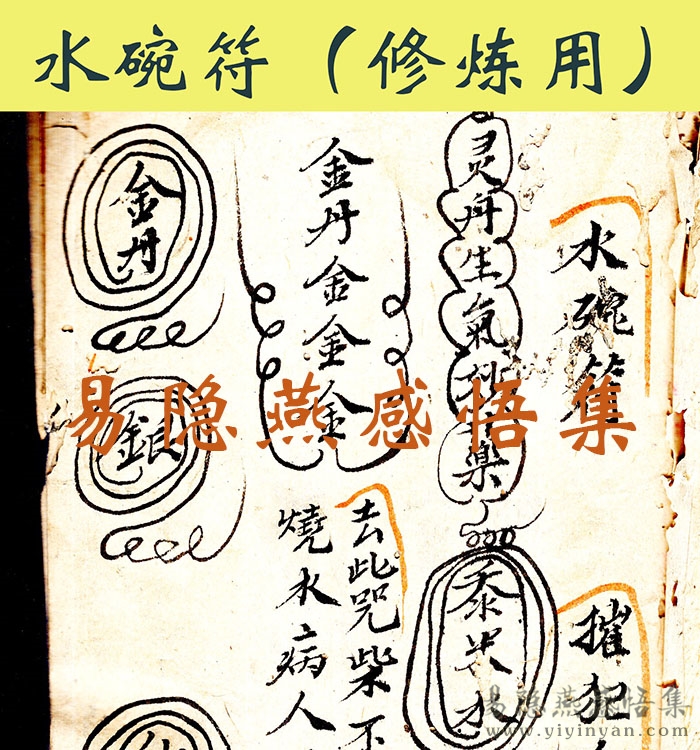 水碗符（修炼用）
水碗符
摧犯
灵丹生氣妙藥
泰炁水
金丹金金金
去此咒柴不
燒水病人
金丹
銀
易隐燕感悟集
易隐燕感悟集
www.yiyinyan.com